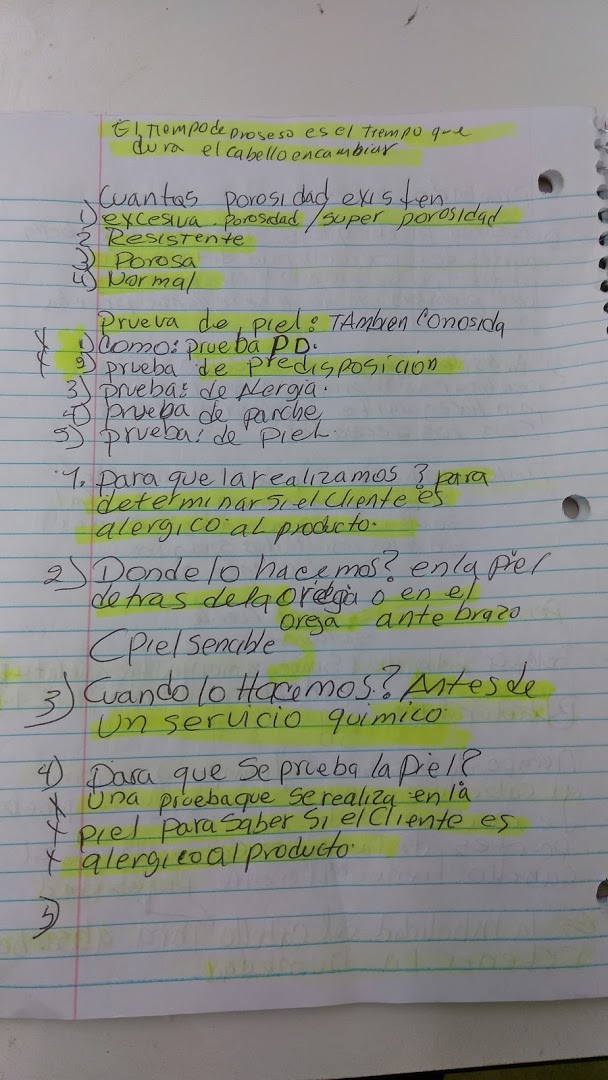 El tiempo de proseso es el tiempo que
dura el cabello en cambiar
Cuantas porosidad existen
1) excesiva porosidad / super porosidad
2 Resistente
3) Porosa
4) Normal
Prueva de piel: TAmbien Conosida
X 1) Como: prueba P.D.
X 2) prueba de predisposición
3) prueba: de Alergia.
4) prueba de parche
5) prueba: de Piel.
1. para que la realizamos? para
determinar si el Cliente es
alergico al producto.
2) Donde lo hacemos? en la piel
detras de la oreja o en el
oreja ante brazo
C piel sencible
3) Cuando lo Hacemos? Antes de
un servicio quimico.
4) Para que Se prueba la piel?
X Una prueba que Se realiza en la
X piel para Saber Si el Cliente es
X alergico al producto.
5)